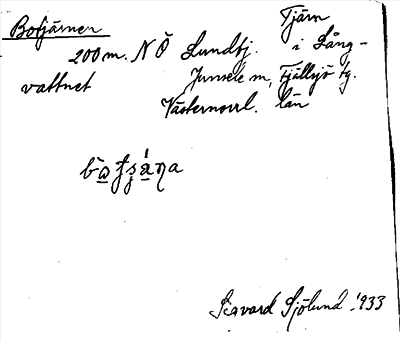 Botjärnen Tjärn
200 m. NÖ Lundtj. i Lång-
vattnet Junsele sn, Fjällsjö tg.
Västernorrl. län
Sigvard Sjölund 1933